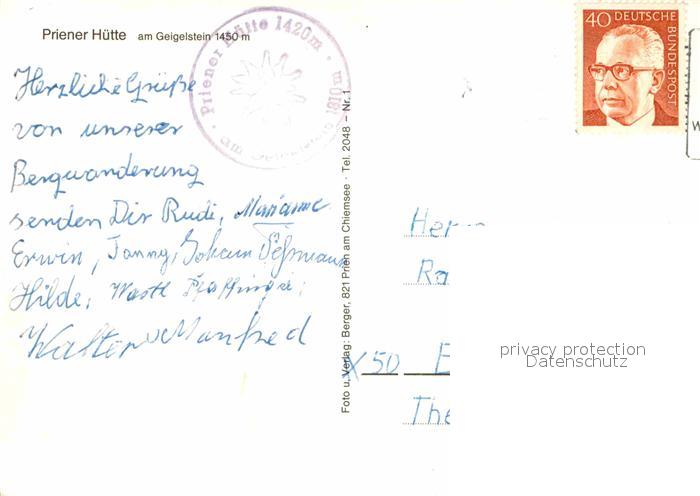 Priener Hütte am Geigelstein 1450 m
Priener Hütte 1420m
am Geigelstein 1810m
40 DEUTSCHE
BUNDESPOST
Herzliche Grüße
von unserer
Bergwanderung
senden Dir Rudi, Marianne
Erwin, Johann
Hilde, Wastl
Walter u. Manfred
Foto u. Verlag: Berger, 821 Prien am Chiemsee · Tel. 2048 – Nr. 1
Her
Ra
X 50 E
The
W
privacy protection
Datenschutz